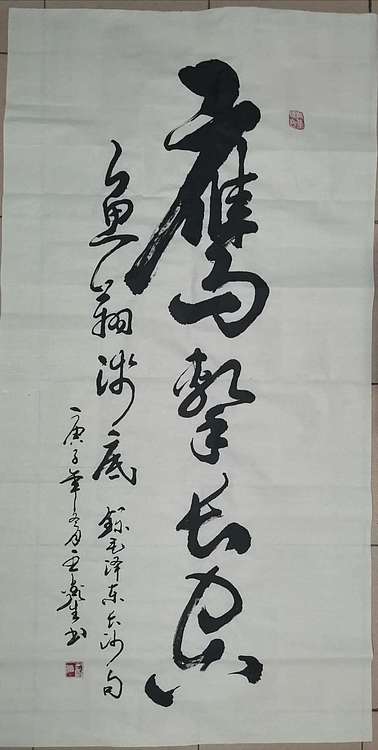 鹰擊长空
鱼翔浅底 録毛泽东长沙句
庚子年冬月王书